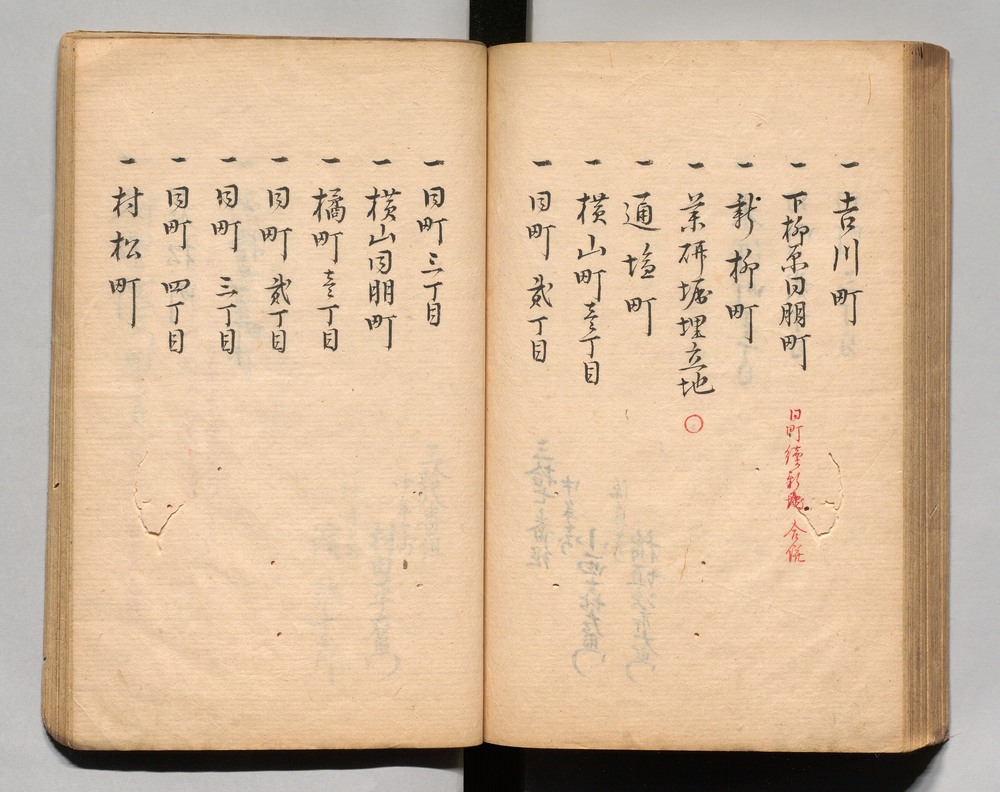 一 吉川町
一 下柳原同朋町 同町続新地合併
一 新柳町
一 薬研堀埋立地 〇
一 通塩町
一 横山町壱丁目
一 同町 弐丁目
一 同町三丁目
一 横山同朋町
一 橘町壱丁目
一 同町 弐丁目
一 同町 三丁目
一 同町 四丁目
一 村松町